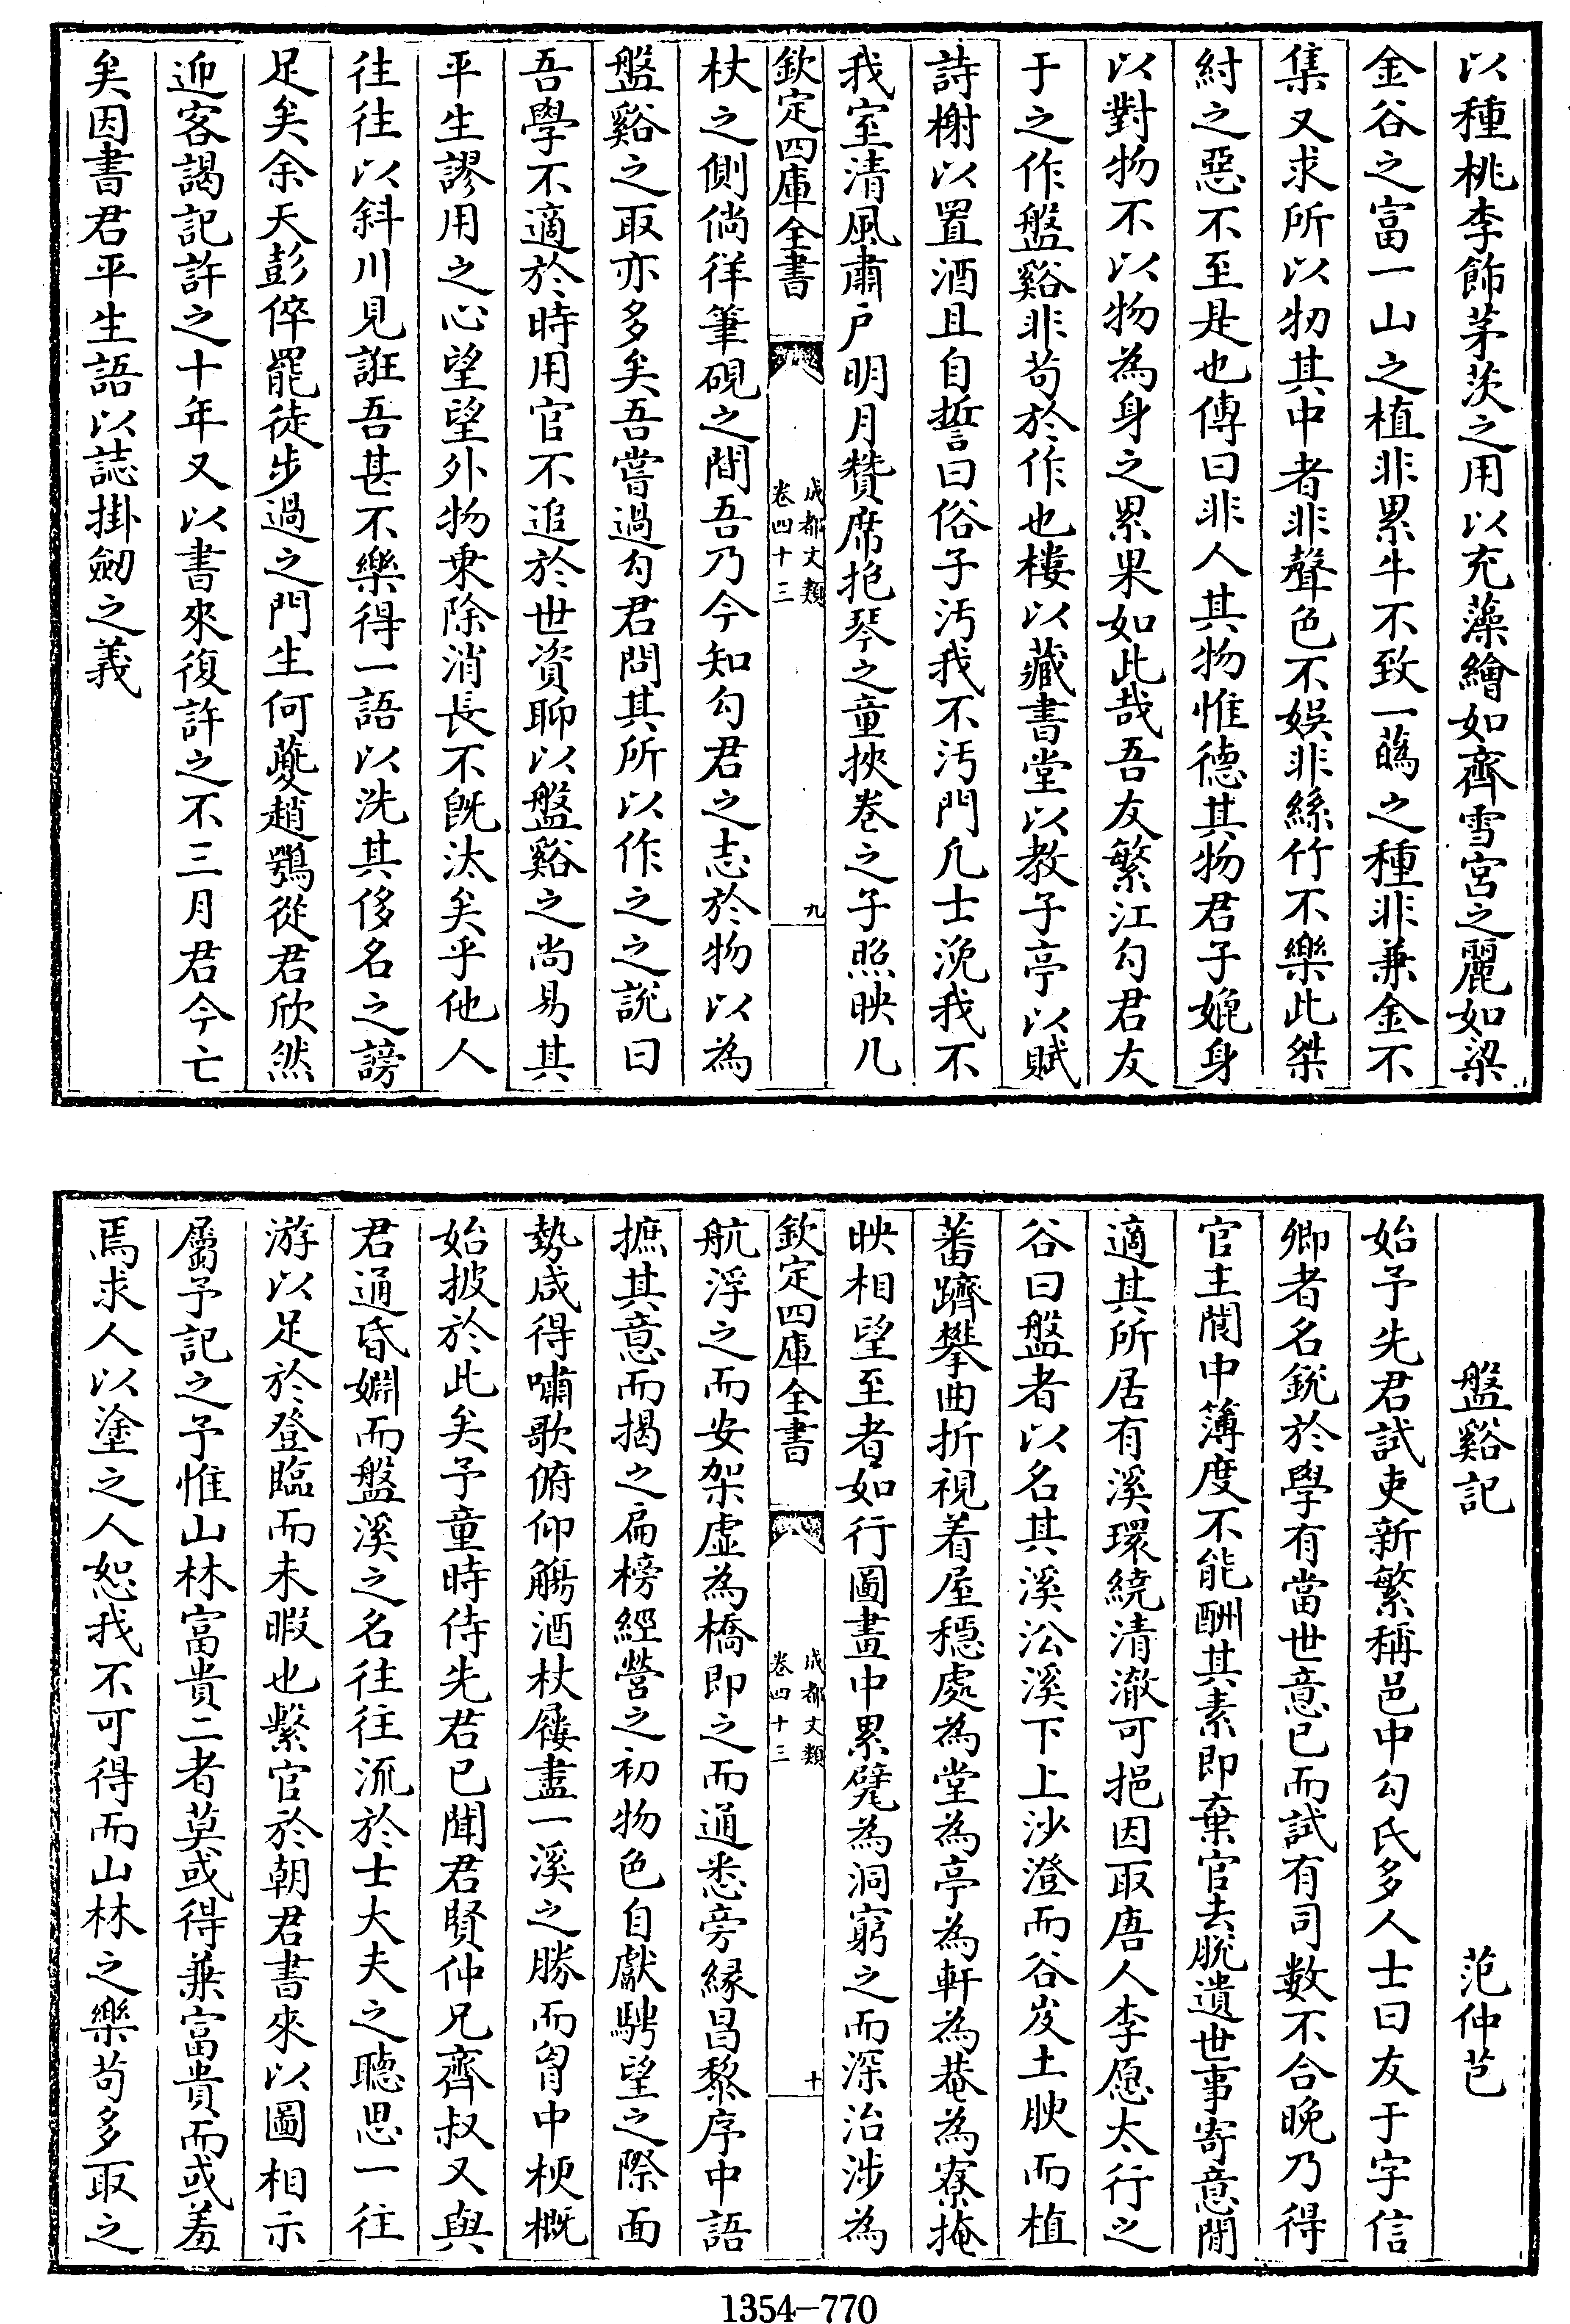 以種桃李飾茅茨之用以充藻繪如齊雪宮之麗如梁
金谷之富一山之植非累牛不致一蘤之種非兼金不
集又求所以牣其中者非聲色不娛非絲竹不樂此桀
紂之惡不至是也傳曰非人其物惟德其物君子娩身
以對物不以物為身之累果如此哉吾友繁江勾君友
于之作盤谿非苟於作也樓以藏書堂以教子亭以賦
詩榭以置酒且自誓曰俗子汚我不汚門凡士浼我不
我室清風肅戶明月贊席抱琴之童挾卷之子照映几
欽定四庫全書
成都文類
卷四十三
九
杖之側倘徉筆硯之間吾乃今知勾君之志於物以為
盤谿之取亦多矣吾嘗過勾君問其所以作之之說曰
吾學不適於時用官不追於世資聊以盤谿之尚易其
平生謬用之心望望外物乗除消長不旣汰矣乎他人
往往以斜川見誑吾甚不樂得一語以洗其侈名之謗
足矣余天彭倅罷徒步過之門生何夔趙鶚從君欣然
迎客謁記許之十年又以書來復許之不三月君今亡
矣因書君平生語以誌掛劒之義
盤谿記 范仲芑
始予先君試吏新繁稱邑中勾氏多人士曰友于字信
卿者名銳於學有當世意已而試有司數不合晚乃得
官主閬中簿度不能酬其素即棄官去脫遺世事寄意閒
適其所居有溪環繞清澈可挹因取唐人李愿太行之
谷曰盤者以名其溪㳂溪下上沙澄而谷岌土腴而植
蕃躋攀曲折視着屋穩處為堂為亭為軒為菴為寮掩
映相望至者如行圖畫中累甓為洞窮之而深治涉為
欽定四庫全書
成都文類
卷四十三
十
航浮之而安架虛為橋即之而通悉旁緣昌黎序中語
摭其意而揭之扁榜經營之初物色自獻騁望之際面
勢咸得嘯歌俯仰觴酒杖屨盡一溪之勝而胷中梗概
始披於此矣予童時侍先君已聞君賢仲兄齊叔又與
君通昏婣而盤溪之名往往流於士大夫之聽思一往
游以足於登臨而未暇也繫官於朝君書來以圖相示
屬予記之予惟山林富貴二者莫或得兼富貴而或羞
焉求人以塗之人恕我不可得而山林之樂苟多取之
1354—770